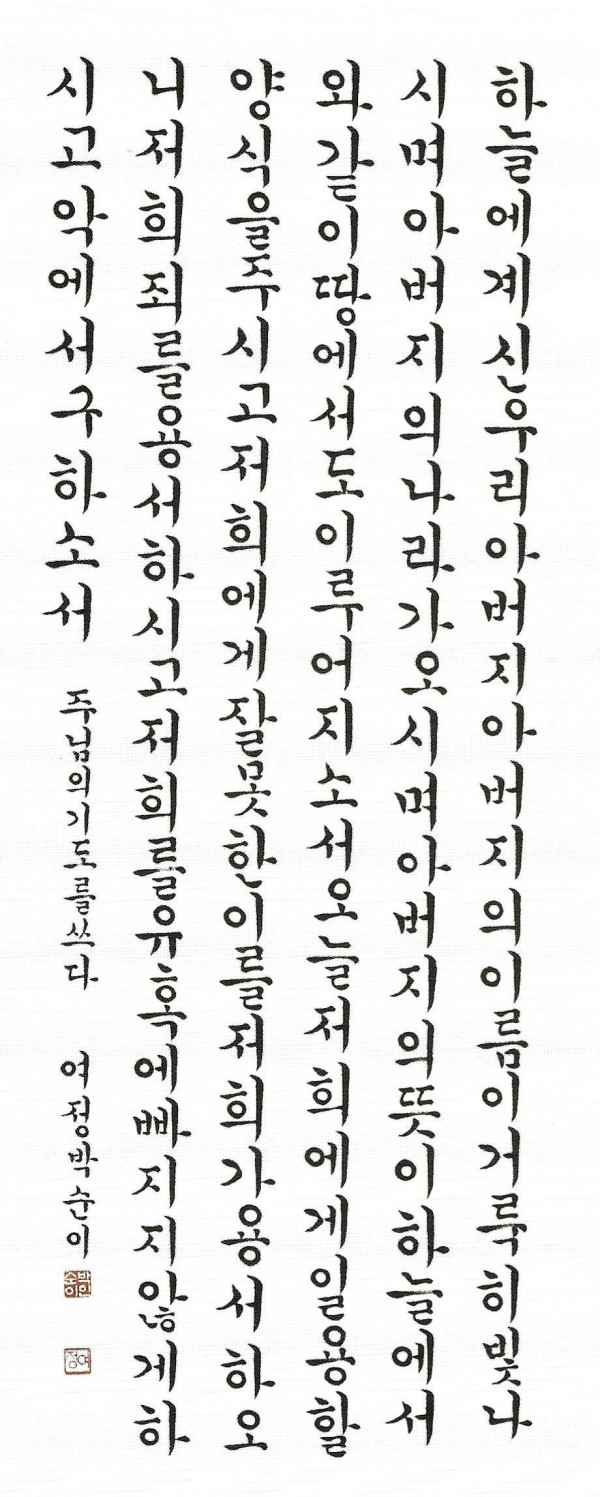 하늘에계신우리아버지아버지의이름이거룩히빛나
시며아버지의나라가오시며아버지의뜻이하늘에서
와같이땅에서도이루어지소서오늘저희에게일용할
양식을주시고저희에게잘못한이를저희가용서하오
니저희죄를용서하시고저희를유혹에빠지지않게하
시고악에서구하소서 주님의기도를쓰다 여정박순이
여정